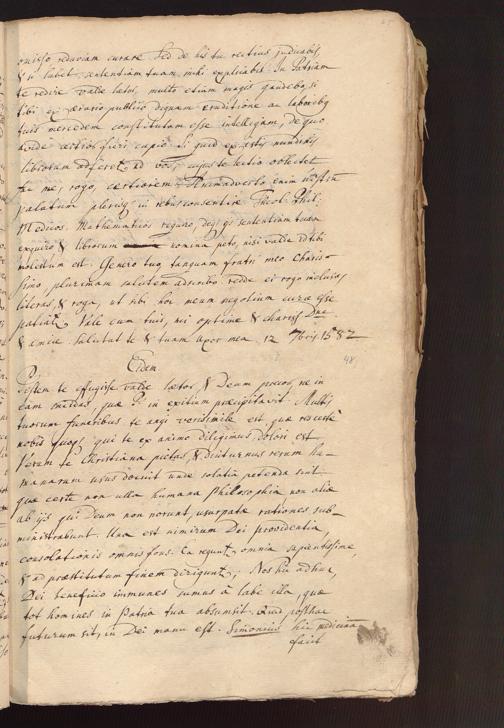 omisso reduviam curare. Sed de his tu rectius judicabis,
& si lubet sententiam tuam mihi explicabis. In Patriam
te redire valde lætor, multo etiam magis gaudebo, si
tibi ex ærario publico dignam eruditione ac laboribus
tuis mercedem constitutam esse intelligam, de quo
fieri cupio. Si quid ex istis nundinis
librorum adferetur ad vos, cujus te lectio oblectet
fac me, rogo, certiorem. Animadverto enim
palatum plerisque in rebus consentire
Medicos. Mathematicos sententiam tuam
exquiro & librorum nomina peto, nisi valde id tibi
molestum est. Genero tuo tanquam fratri meo charis-
simo, plurimam salutem adscribo redde ei rogo inclusas
literas, & roga, ut sibi hoc meum negotium curæ esse
patiatur. Vale cum tuis, mi optime & chariss. Dne
& amice. Salutat te & tuam uxor mea. 12 7bris 1582
Eidem 48
Pestem te effugisse valde lætor, & Deum precor, ne in
eam incidas, quæ P. in exitium præcipitavit. Multis
tuorum funeribus te angi verisimile est, quæ res certè
nobis quoque, qui te ex animo diligimus, dolori est.
Verum te Christiana pietas, & diuturnus rerum hu-
manarum usus docuit unde solatia petenda sint
quæ certe non ulla humana Philosophia non aliæ
ab ijs qui Deum non norunt, usurpatæ rationes sub-
ministrabunt. Una est nimirum Dei providentia
consolationis omnis fons. Ea regunt omnia sapientissime,
& ad præstitutum finem diriguntur. Nos hic adhuc,
Dei beneficio immunes sumus à labe illa, quæ
tot homines in patria tua absumsit. Quid posthac
futurum sit, in Dei manu est. Simonius hic medicinam
facit